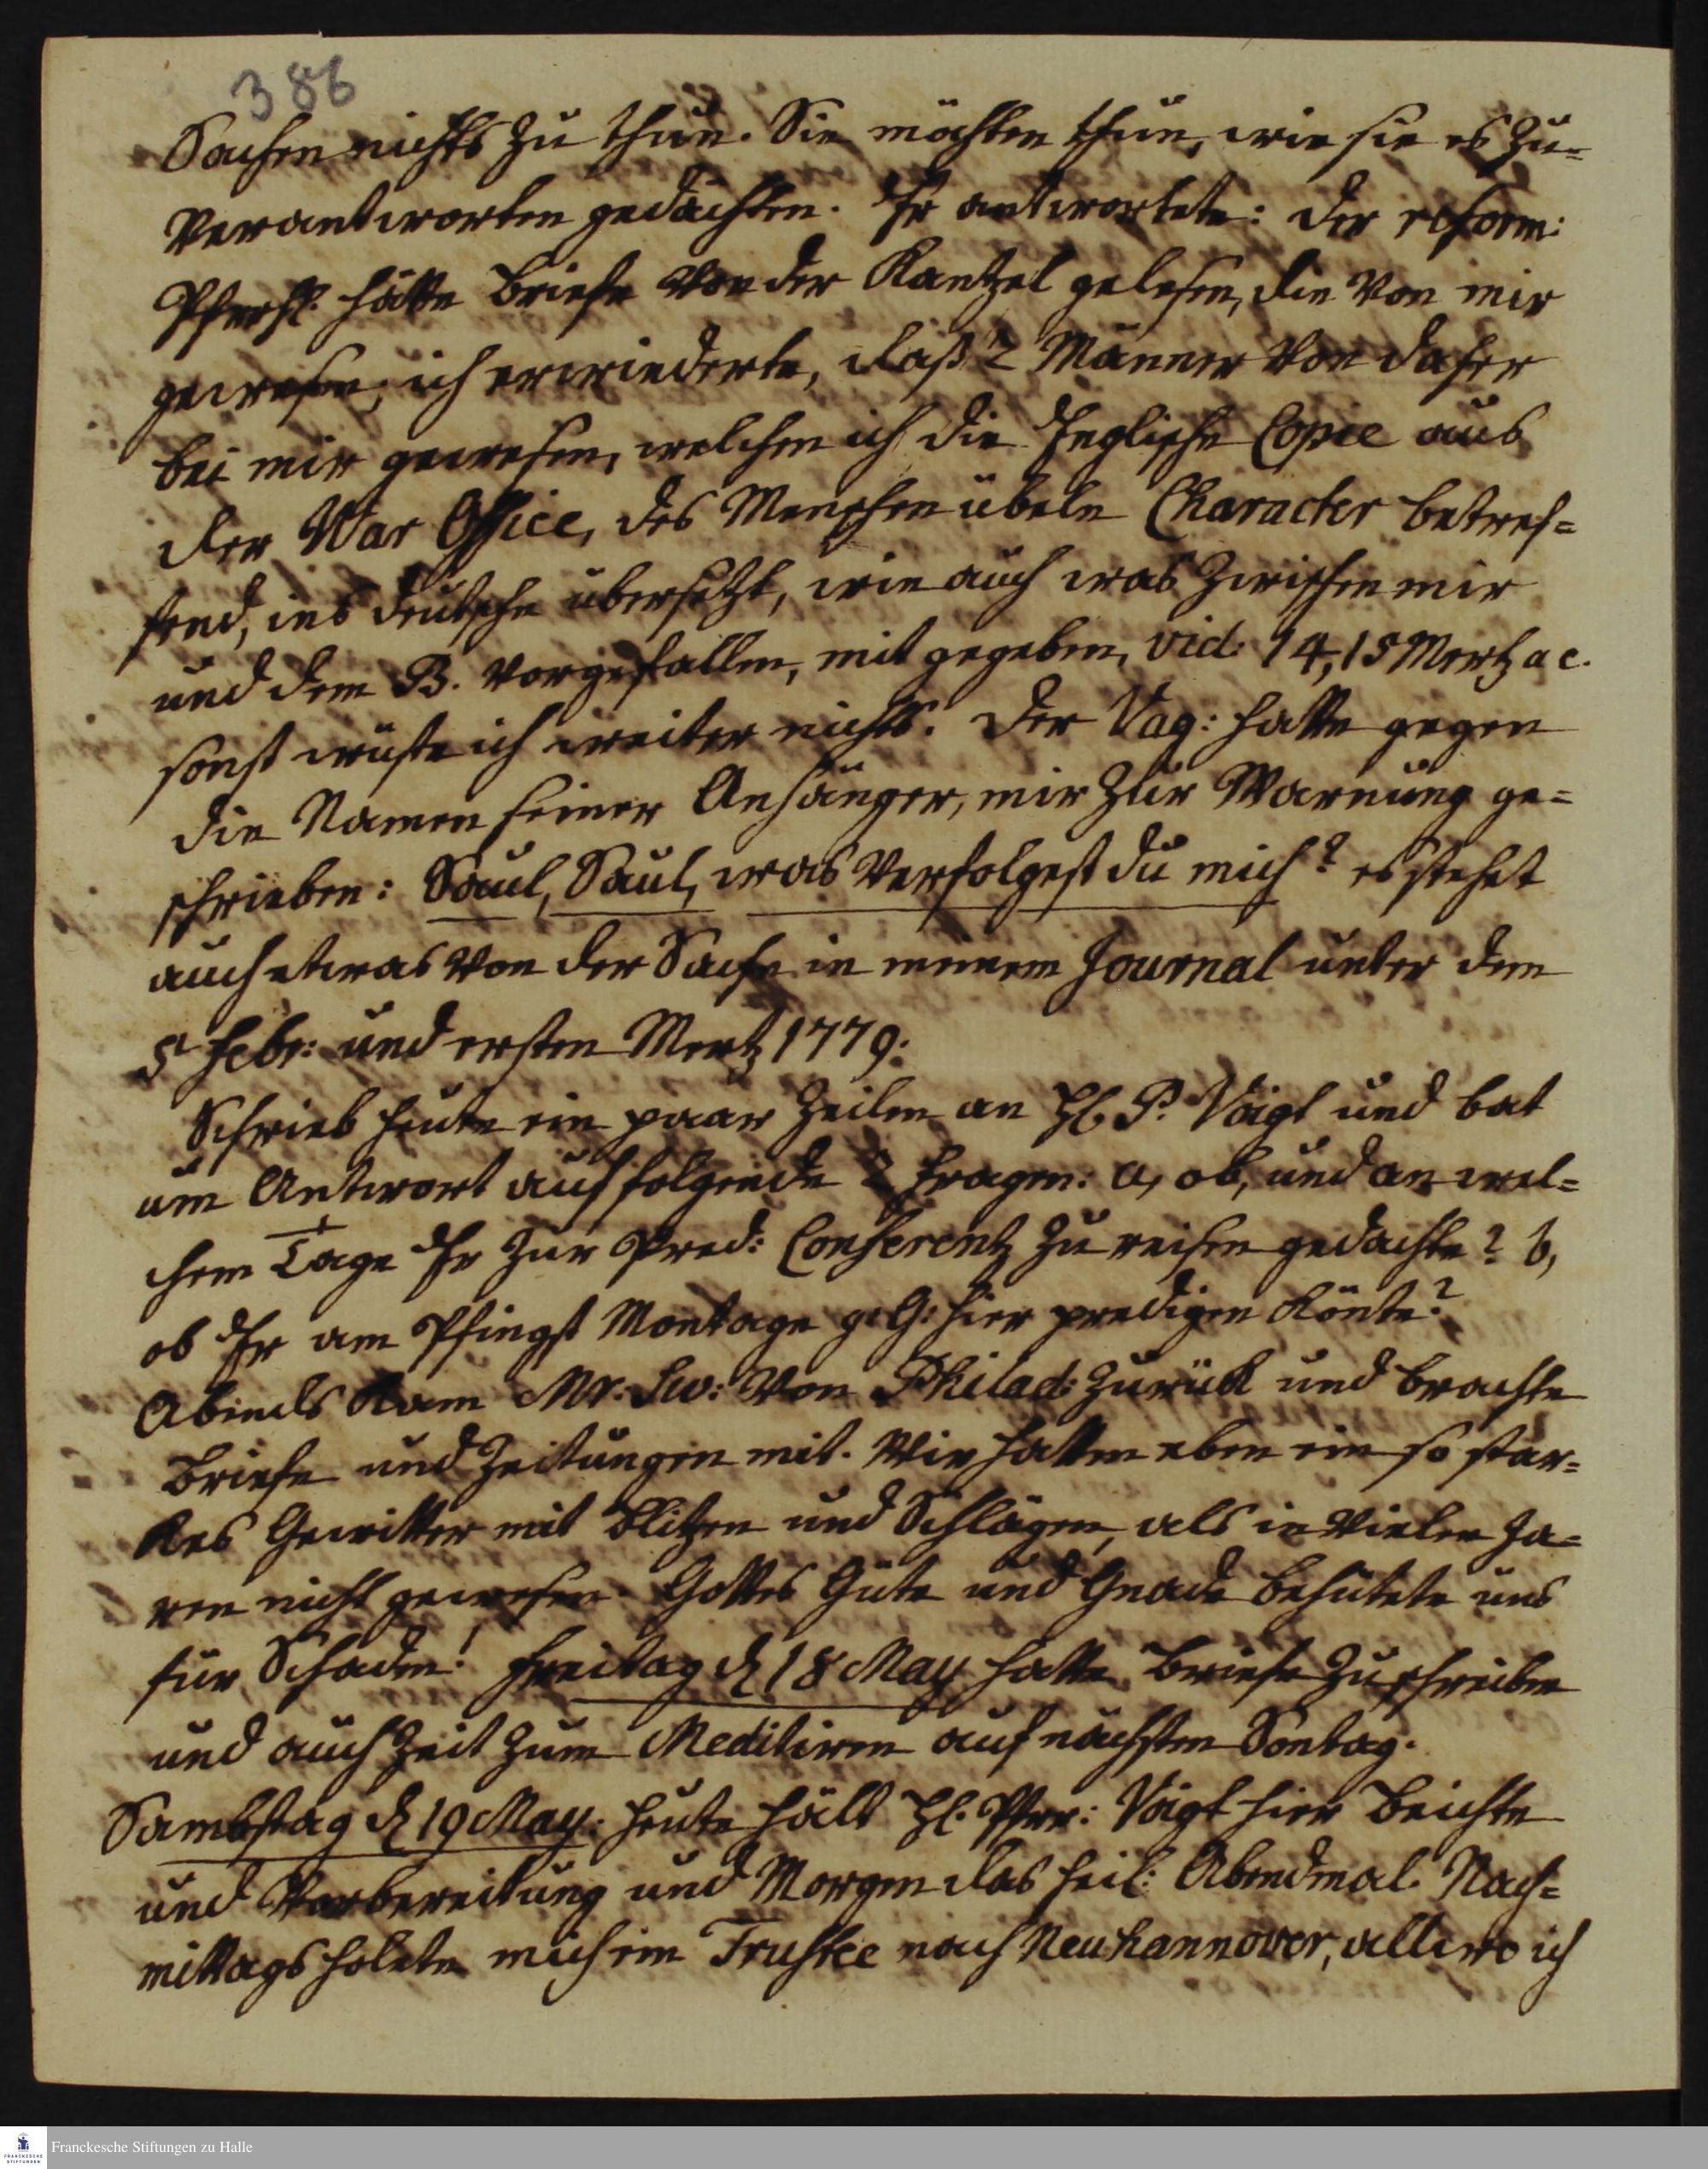 386
Sachen nichts zu thun. Sie möchten thun, wie sie es zu=
verantworten gedächten. Er antwortete: der reform:
hätte Briefe von der Kantzel gelesen, die von mir
gewesen, ich erwiederte, daß 2 Männer von daher
bei mir gewesen, welchen ich die Englische Copie aus
der War Office, des Menschen übeln Character betref=
fend, ins deutsche übersetzt, wie auch was zwischen mir
und dem B. vorgefallen, mit gegeben, vid: 14, 15 Mertz a c.
sonst wüste ich weiter nichts. Der Vag: hatte gegen
die Namen seiner Anhänger, mir zur Warnung ge=
schrieben: Saul, Saul, was verfolgest du mich? es stehet
auch etwas von der Sache in meinem Journal unter dem
5t Febr: und ersten Mertz 1779:
Schrieb heute ein paar Zeilen an H. P. Voigt und bat
um Antwort auf folgende 2 Fragen: a, ob, und an wel=
chem Tage Er zur Pred: Conferentz zu reisen gedächte? b,
ob Er am Pfingst Montage g. G: hier predigen könte?
Abends kam Mr: Sw: von Philad: zurük und brachte
Briefe und Zeitungen mit. Wir hatten eben ein so star=
kes Gewitter mit Blitzen und Schlägen, als in vielen Ja=
ren nicht gewesen. Gottes Güte und Gnade behütete uns
für Schaden! Freitag d 18 May hatte Briefe zu schreiben
und auch Zeit zum Meditiren auf nächsten Sontag.
Sambstag d 19 May: heute hält H. Pfarr: Voigt hier Beichte
und Vorbereitung und Morgen das heil: Abendmal. Nach=
mittags holete mich ein Trustee nach Neuhannover, allwo ich
Franckesche Stiftungen zu Halle
FRANCKESCHE
STIFTUNGEN